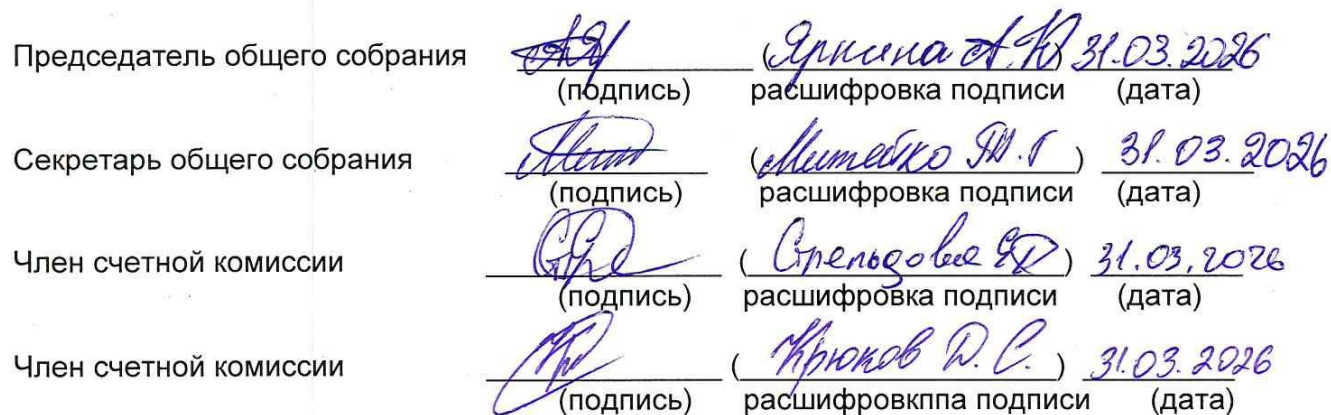 Председатель общего собрания (Яркина А.К) 31.03.2026
(подпись) расшифровка подписи (дата)
Секретарь общего собрания (Митебко Т.Г) 31.03.2026
(подпись) расшифровка подписи (дата)
Член счетной комиссии ( ) 31.03.2026
(подпись) расшифровка подписи (дата)
Член счетной комиссии (Крюков Д.С.) 31.03.2026
(подпись) расшифровкппа подписи (дата)